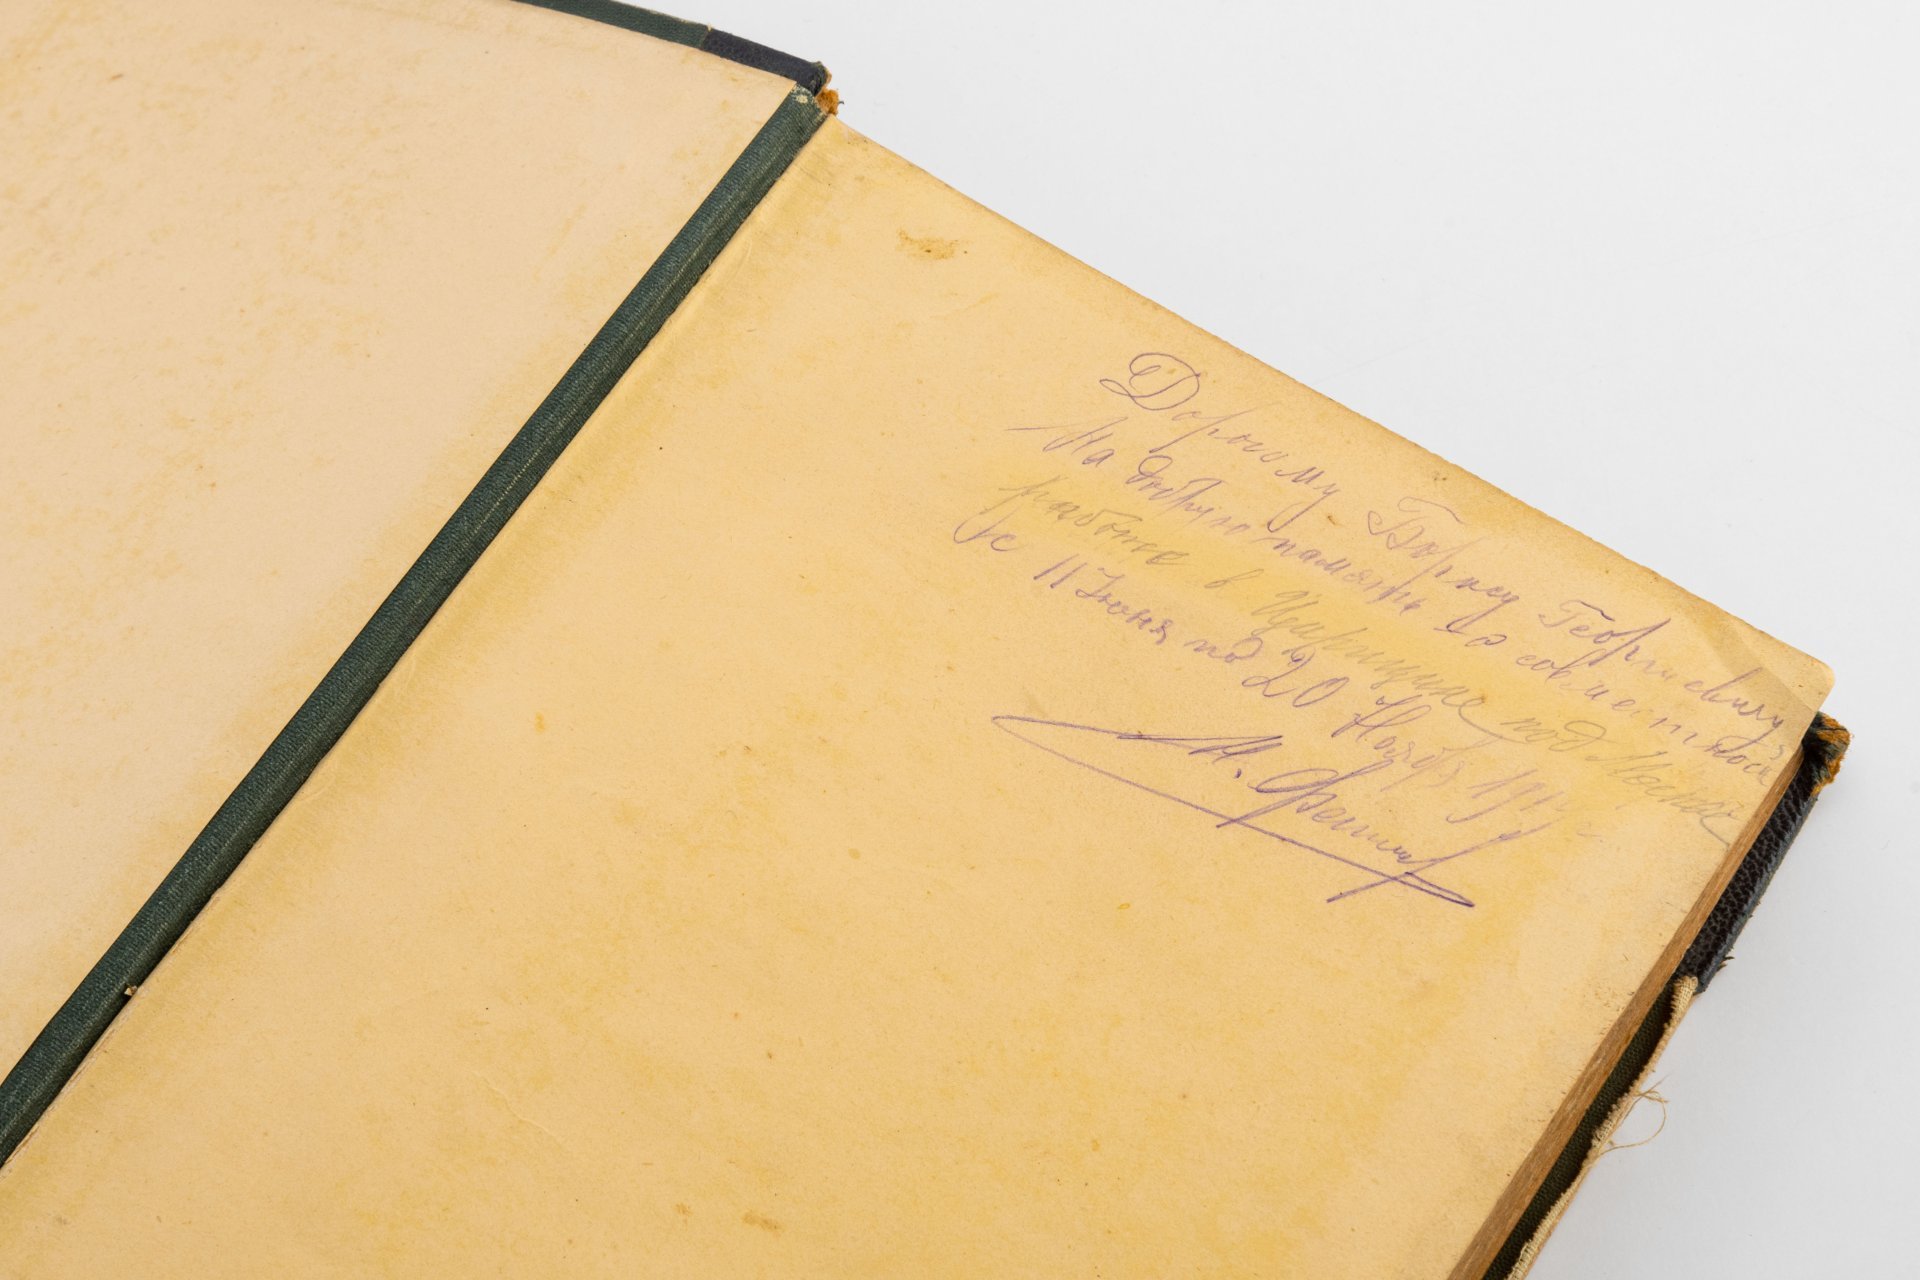 Дорогому Борису Георгиевичу
На добрую память о совместной
работе в Царицыне под Москвой
с 11 Июня по 20 Ноября
Н.